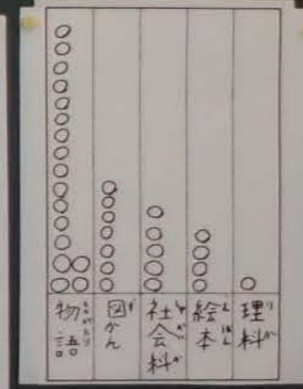 物語
ものがたり
図かん
ず
社会科
しゃかいか
絵本
えほん
理科
りか